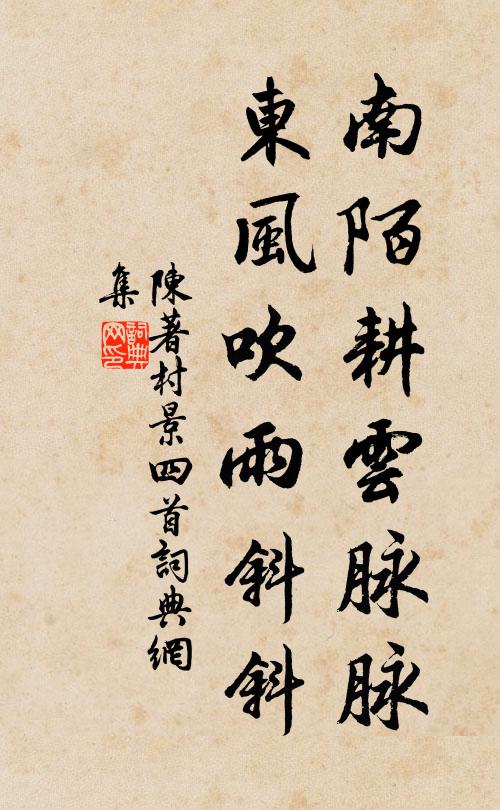 南陌耕雲脉脉
東風吹雨斜斜
陳著村景四首詞典網
集
詞典网印